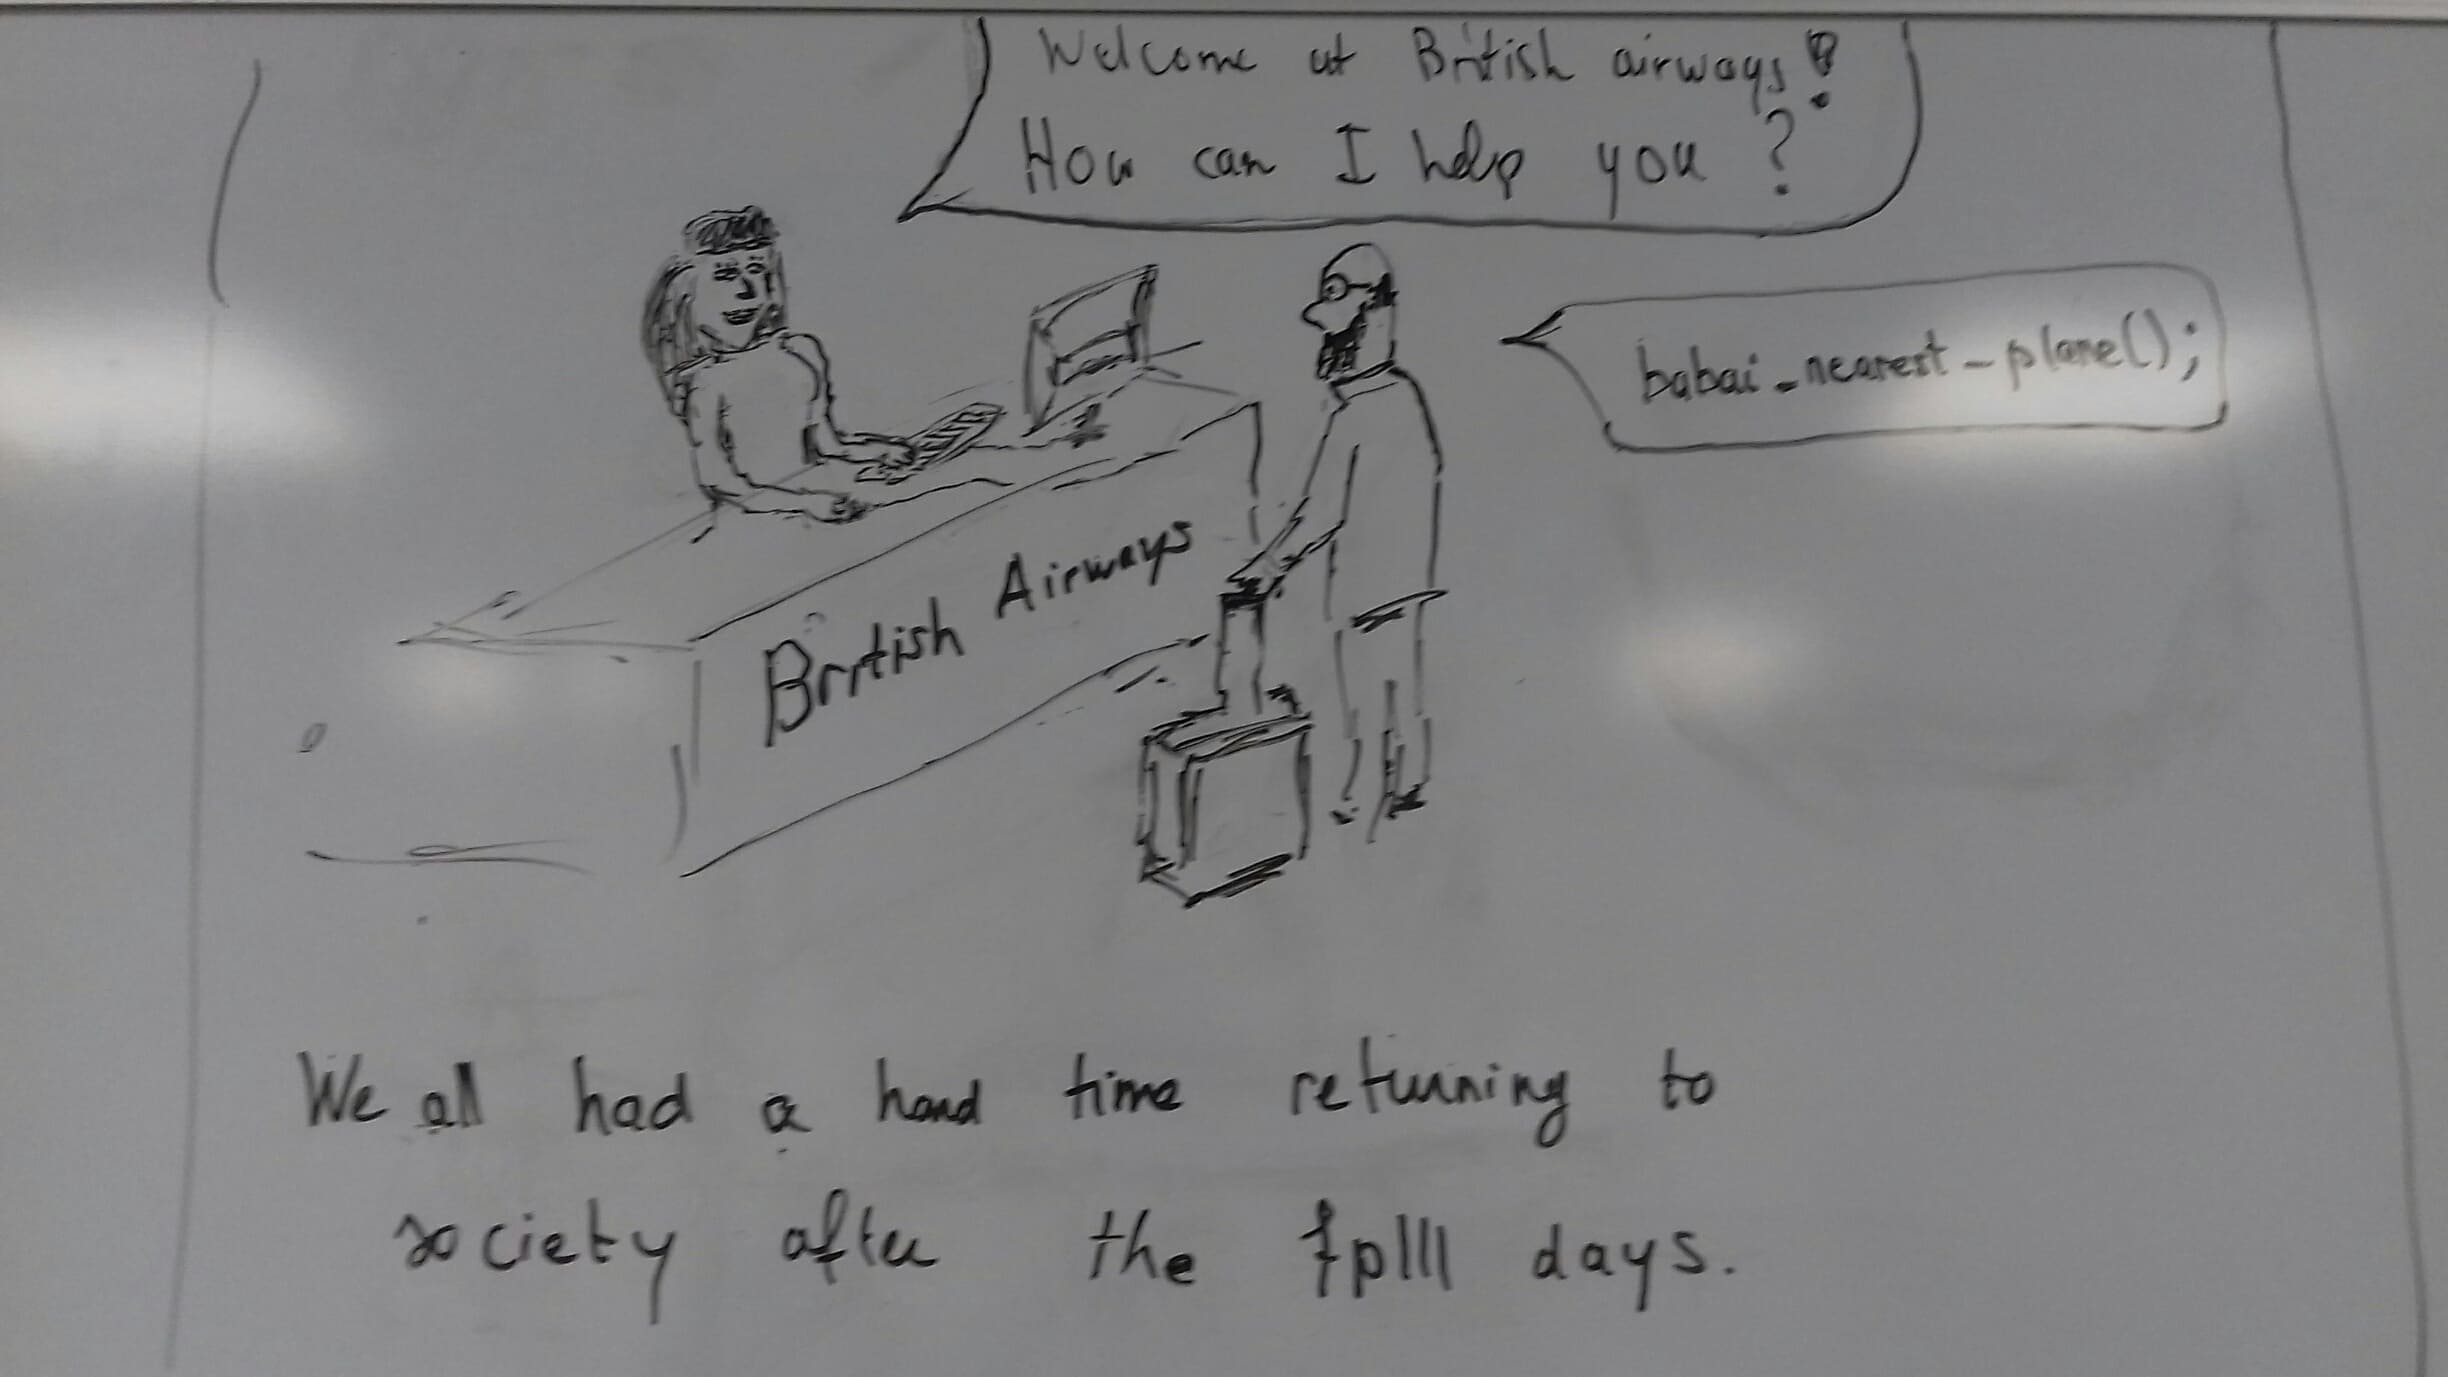 Welcome at British airways!
How can I help you ?
babai_nearest_plane();
British Airways
We all had a hard time returning to
society after the fplll days.